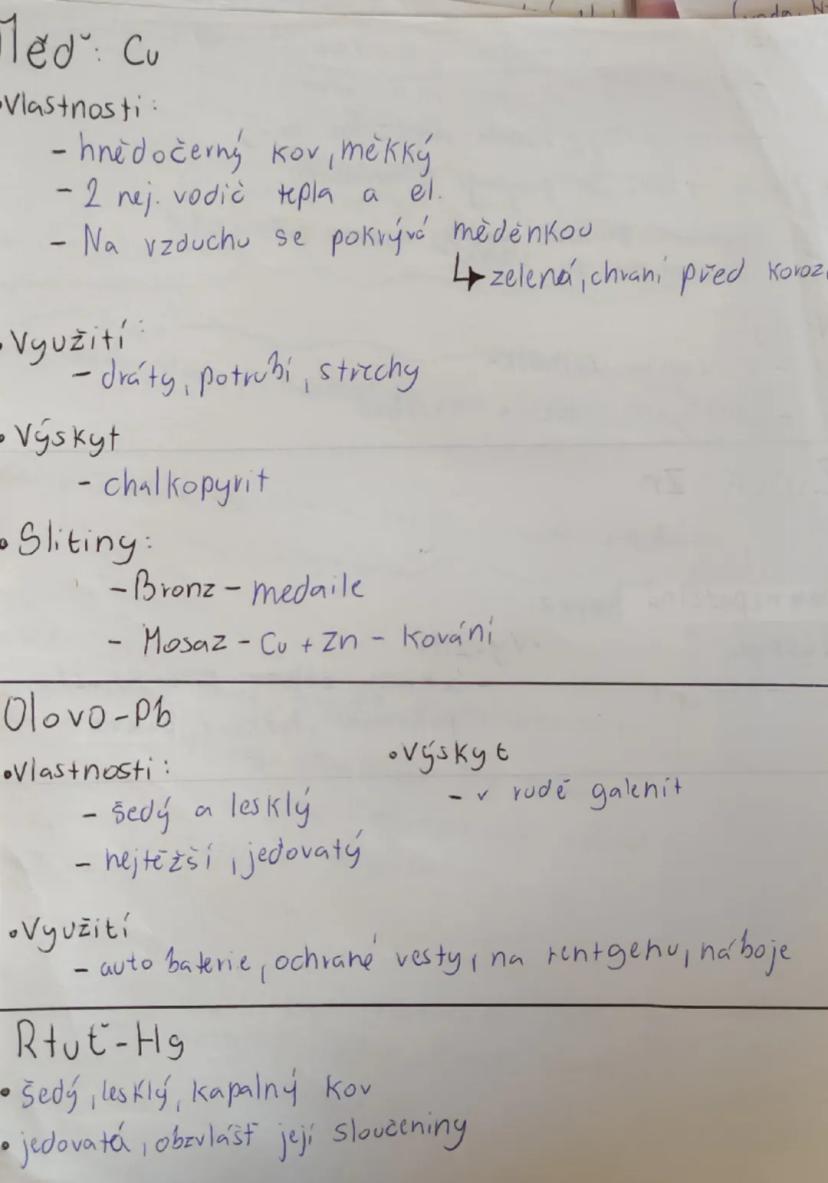 Měď: Cu
•Vlastnosti:
- hnědočerný kov, měkký
- 2 nej. vodič tepla a el.
- Na vzduchu se pokrývá měděnkou
↳ zelená, chraní před koroz
• Využití:
- dráty, potrubí, střechy
• Výskyt
- chalkopyrit
• Slitiny:
- Bronz - medaile
- Mosaz - Cu + Zn - kování
Olovo-Pb
•Vlastnosti:
- šedý a lesklý
- nejtěžší, jedovatý
•Výskyt
- v rudě galenit
•Využití
- auto baterie, ochrané vesty, na rentgenu, náboje
Rtuť-Hg
• šedý, lesklý, kapalný kov
• jedovatá, obzvlášť její sloučeniny